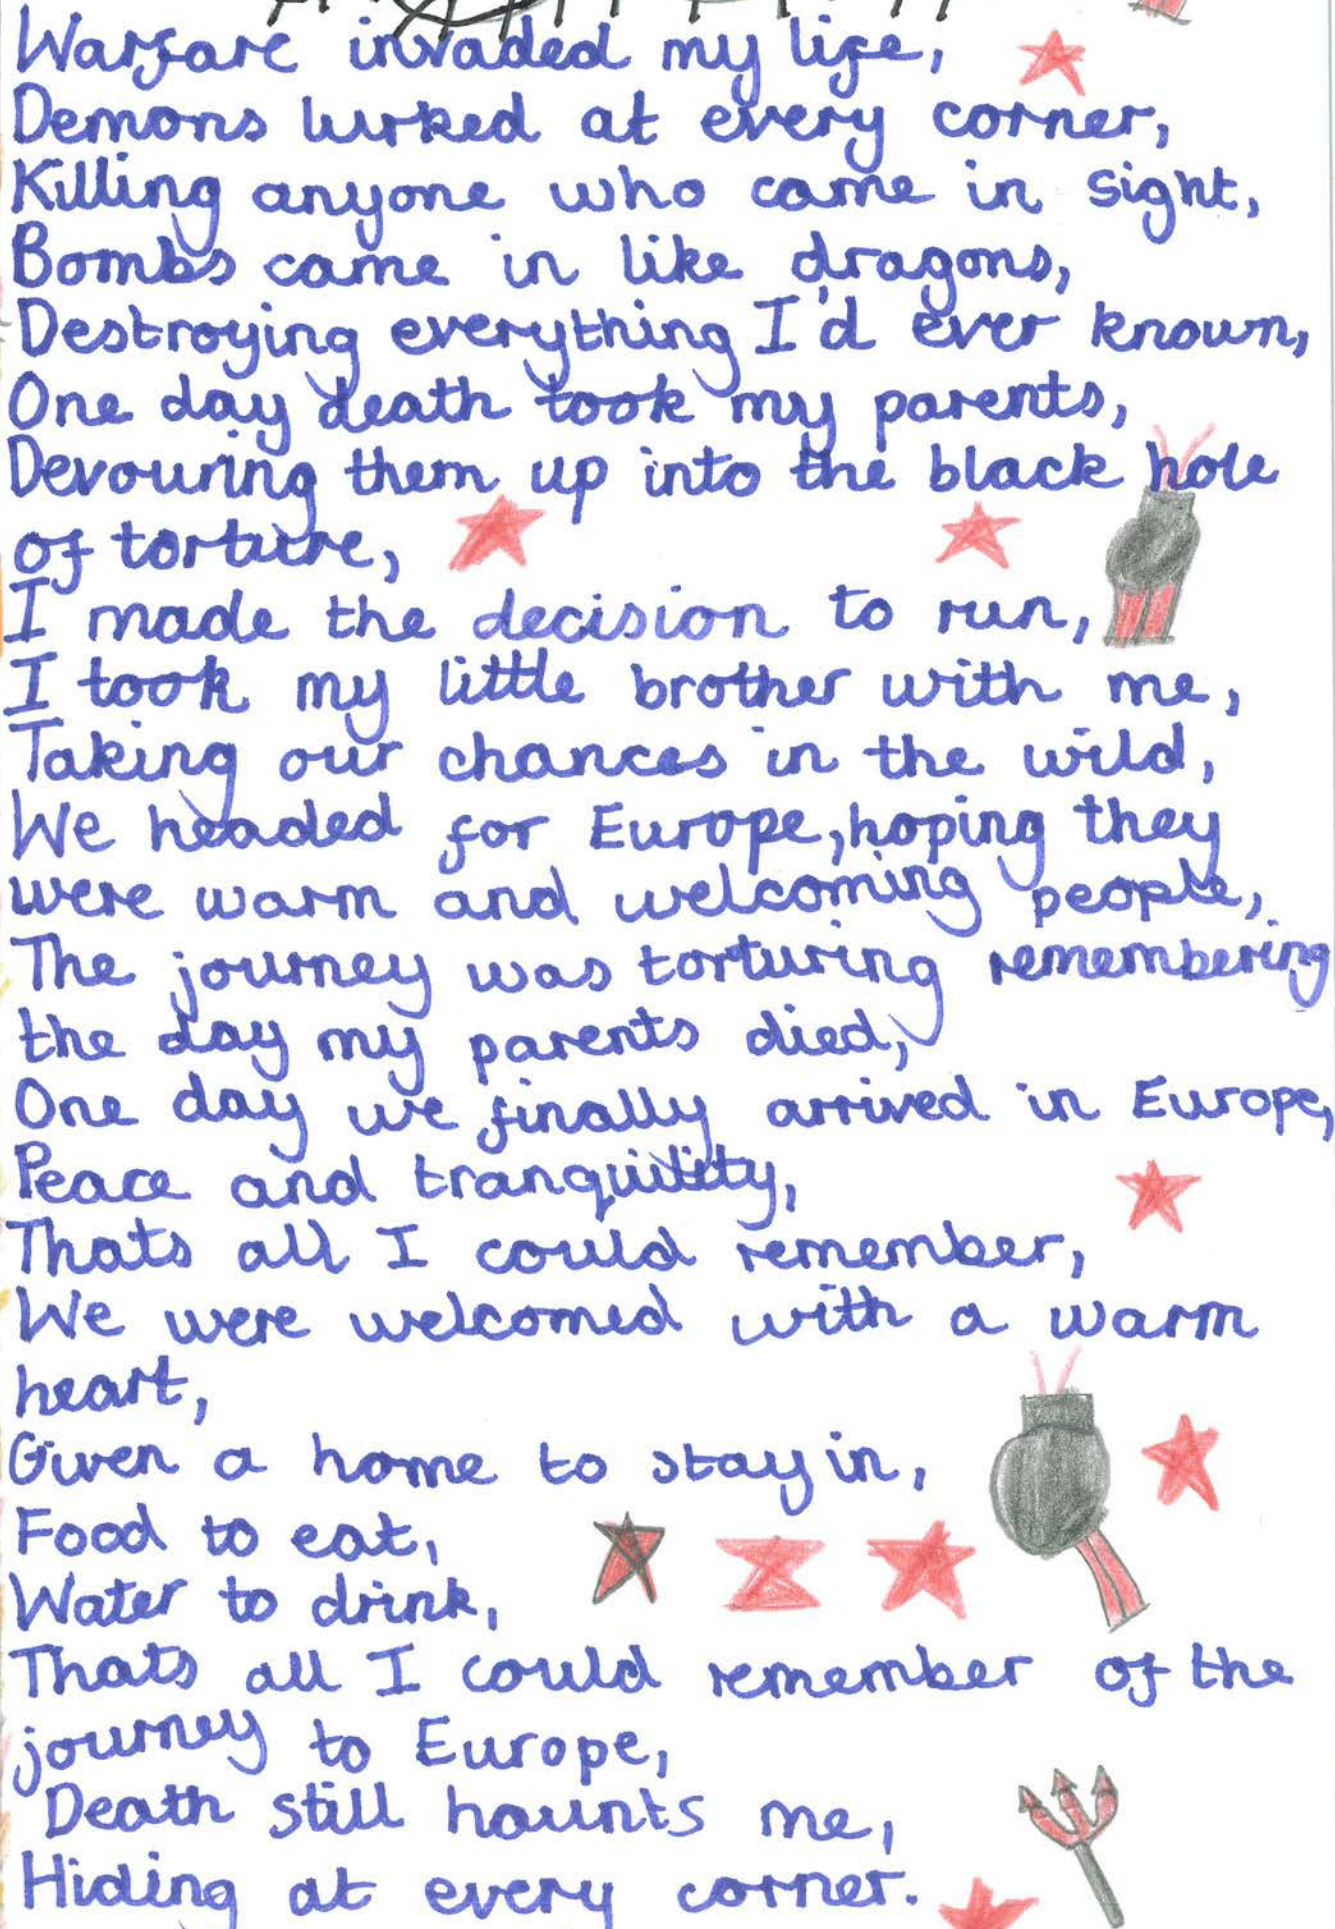 Warfare invaded my life,
Demons lurked at every corner,
Killing anyone who came in sight,
Bombs came in like dragons,
Destroying everything I'd ever known,
One day death took my parents,
Devouring them up into the black hole
of torture,
I made the decision to run,
I took my little brother with me,
Taking our chances in the wild,
We headed for Europe, hoping they
were warm and welcoming people,
The journey was torturing remembering
the day my parents died,
One day we finally arrived in Europe,
Peace and tranquility,
Thats all I could remember,
We were welcomed with a warm
heart,
Given a home to stay in,
Food to eat,
Water to drink,
Thats all I could remember of the
journey to Europe,
Death still haunts me,
Hiding at every corner.